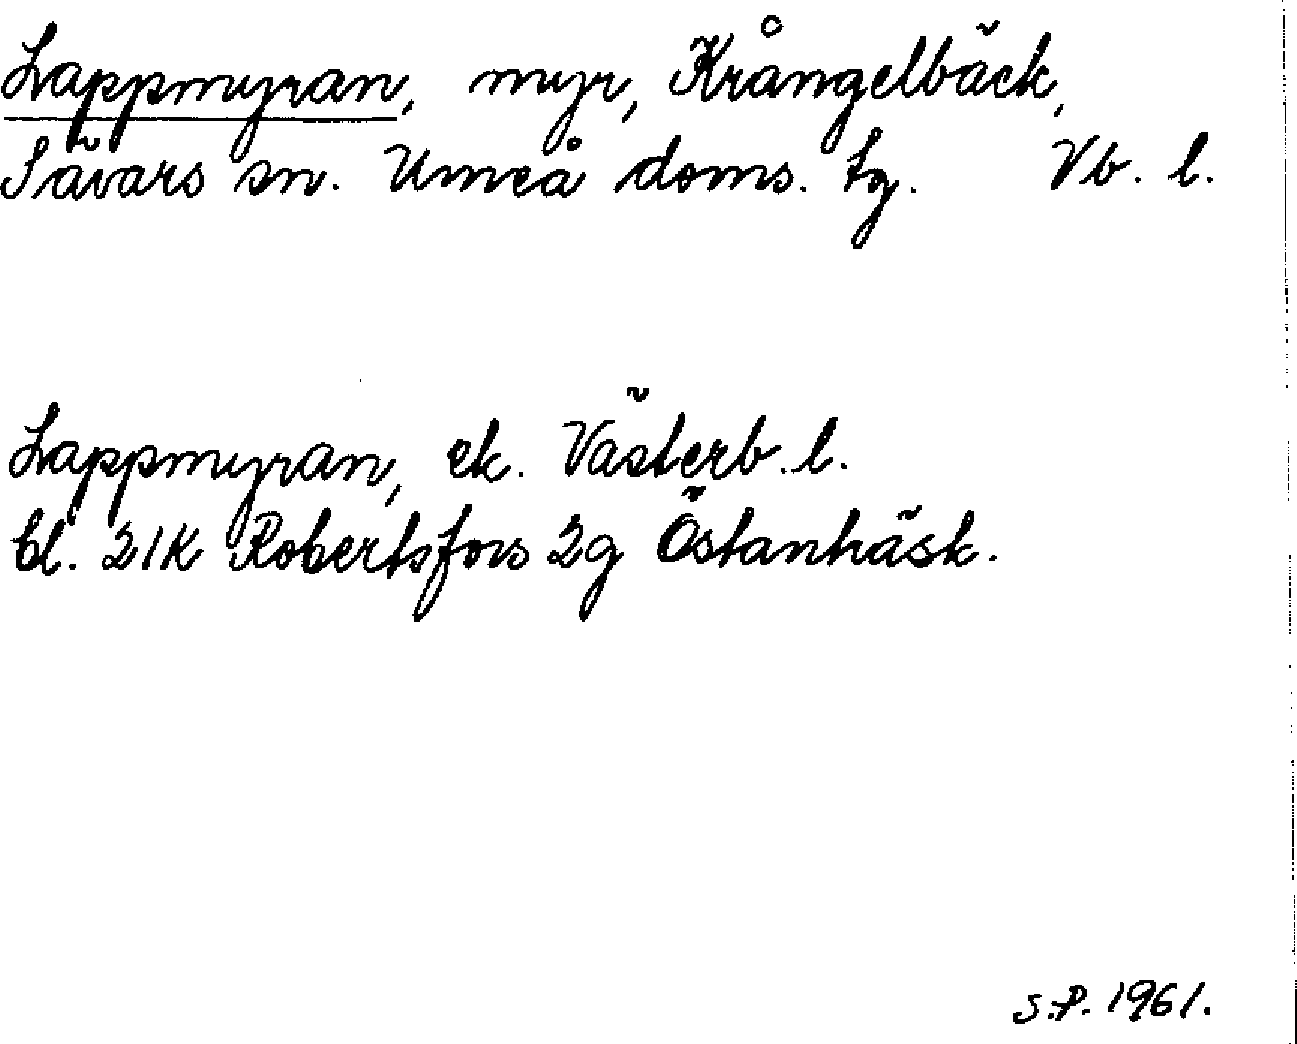 Lappmyran, myr, Krångelbäck,
Sävars sn. Umeå doms. tg. Vb. l.
Lappmyran, ek. Västerb. l.
bl. 21K Robertsfors 2g Östanbäck.
S.P. 1961.